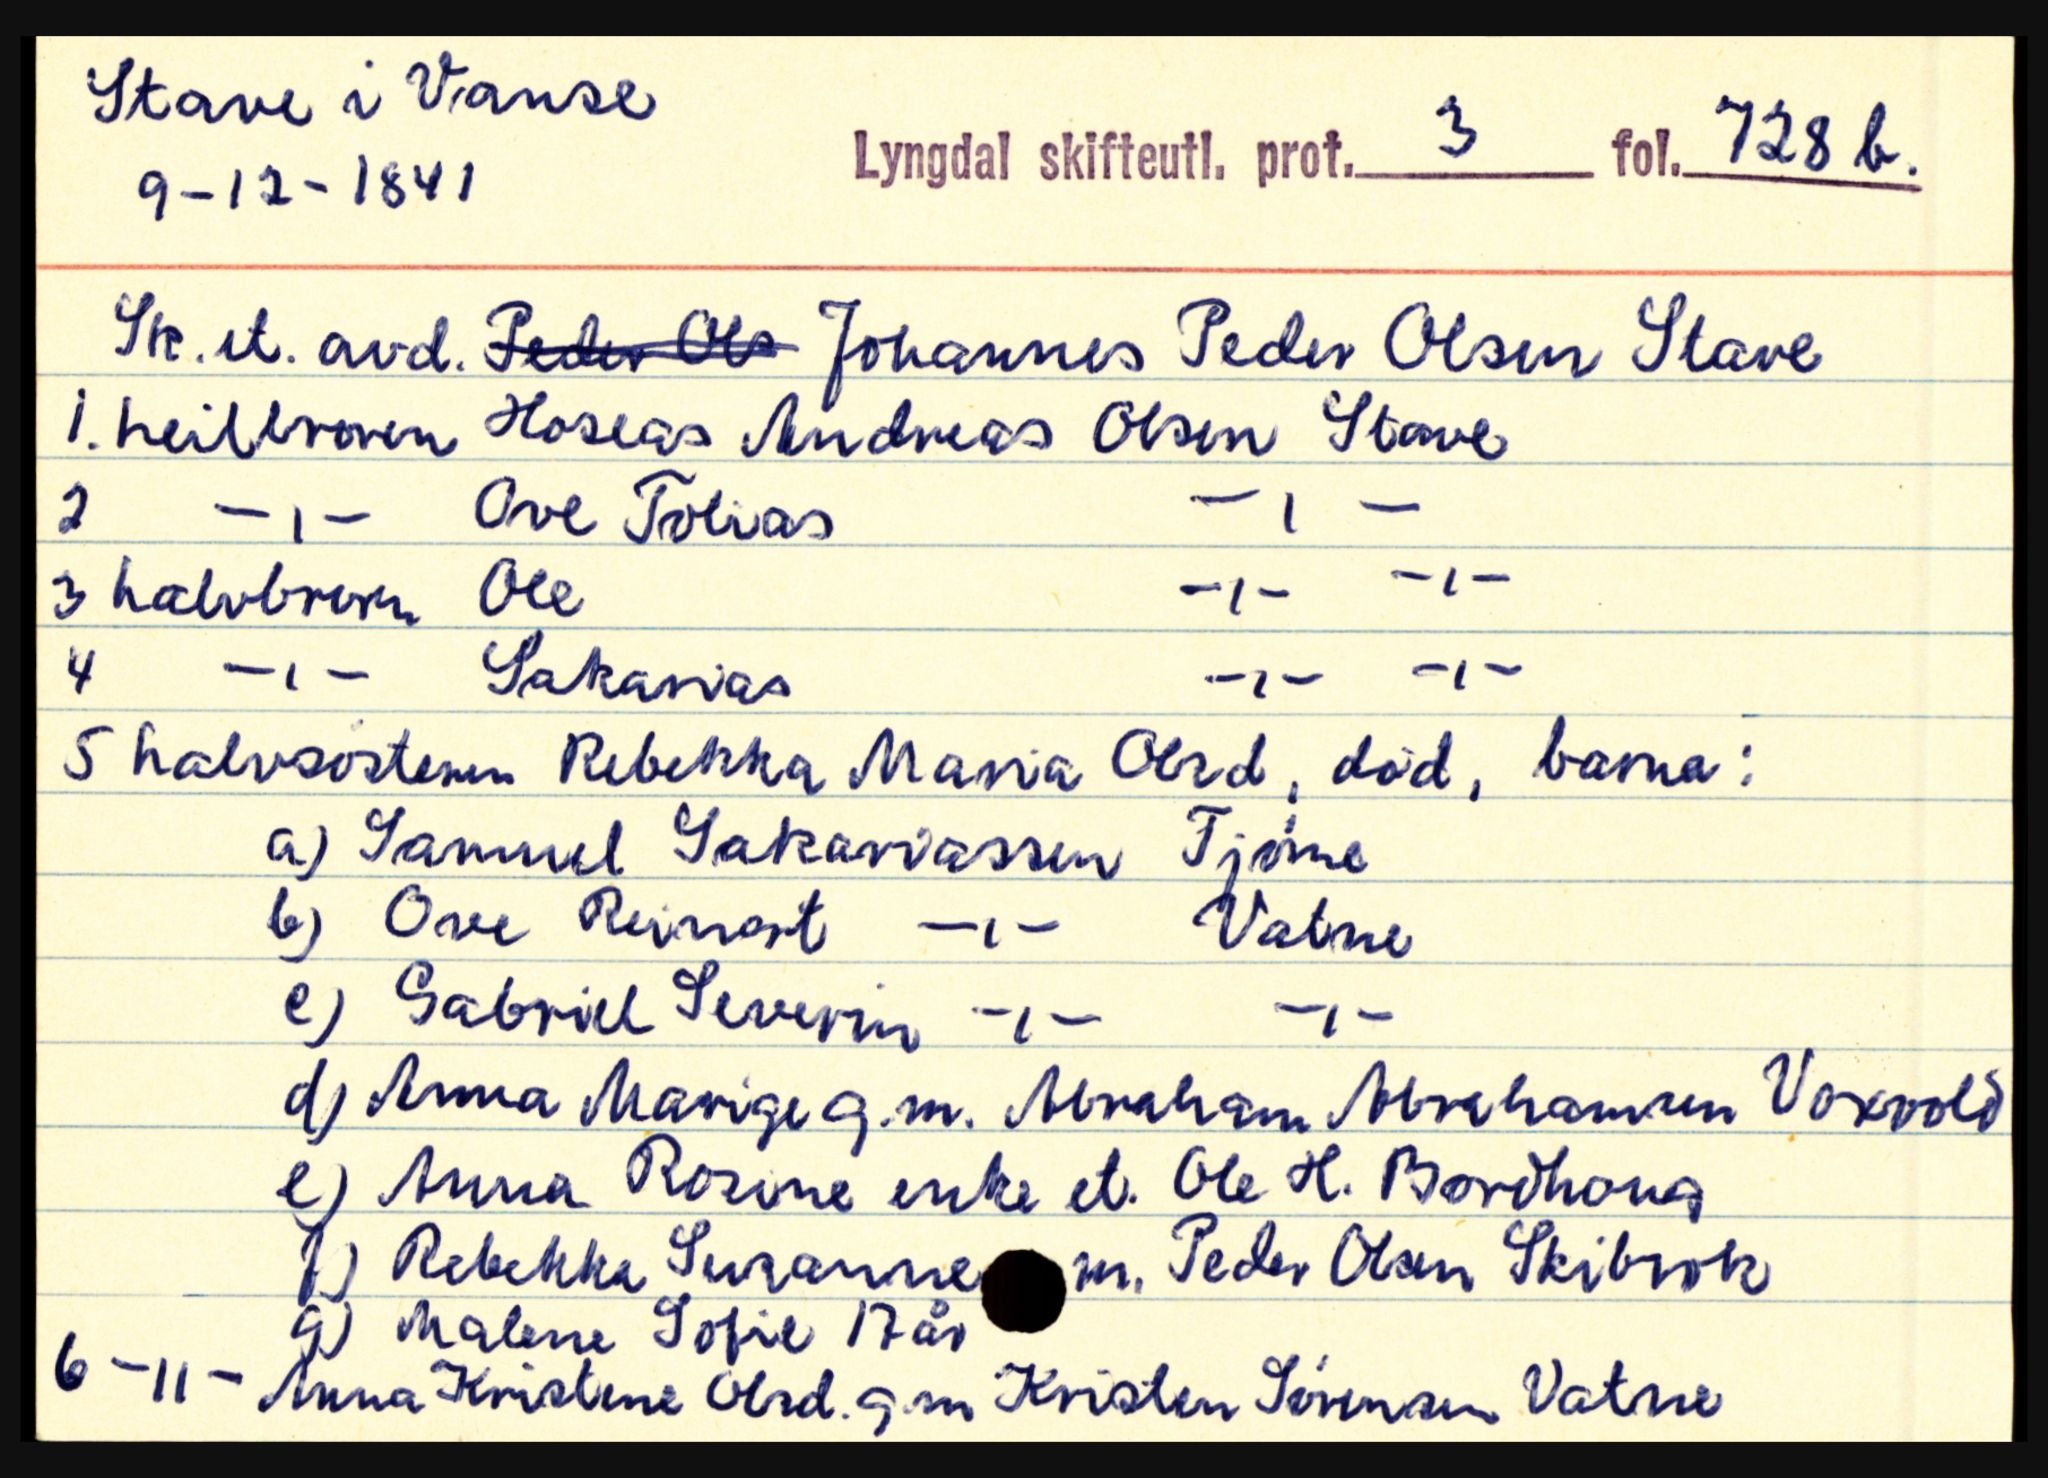 Stave i Vanse
9-12-1841
Lyngdal skifteutl. prot. 3 fol. 728 b.
Sk. et. avd. Peder Ols Johannes Peder Olsen Stave
1. heilbroren Hoseas Andreas Olsen Stave
2 -ı- Ove Tobias -ı-
3 halvbroren Ole -ı- -ı-
4 -ı- Sakarias -ı- -ı-
5 halvsøsteren Rebekka Maria Olsd, død, barna:
a) Samuel Sakariassen Tjøme
b) Ove Reinert -ı- Vatne
c) Gabriel Severin -ı- -ı-
d) Anna Marige g.m. Abraham Abrahamsen Voxvold
e) Anna Rosine enke et. Ole H. Bordhoug
f) Rebekka Susanne m. Peder Olsen Skibrok
g) Malene Sofie 17 år
6 -ıı- Anna Kristene Olsd. g.m Kristen Sørensen Vatne